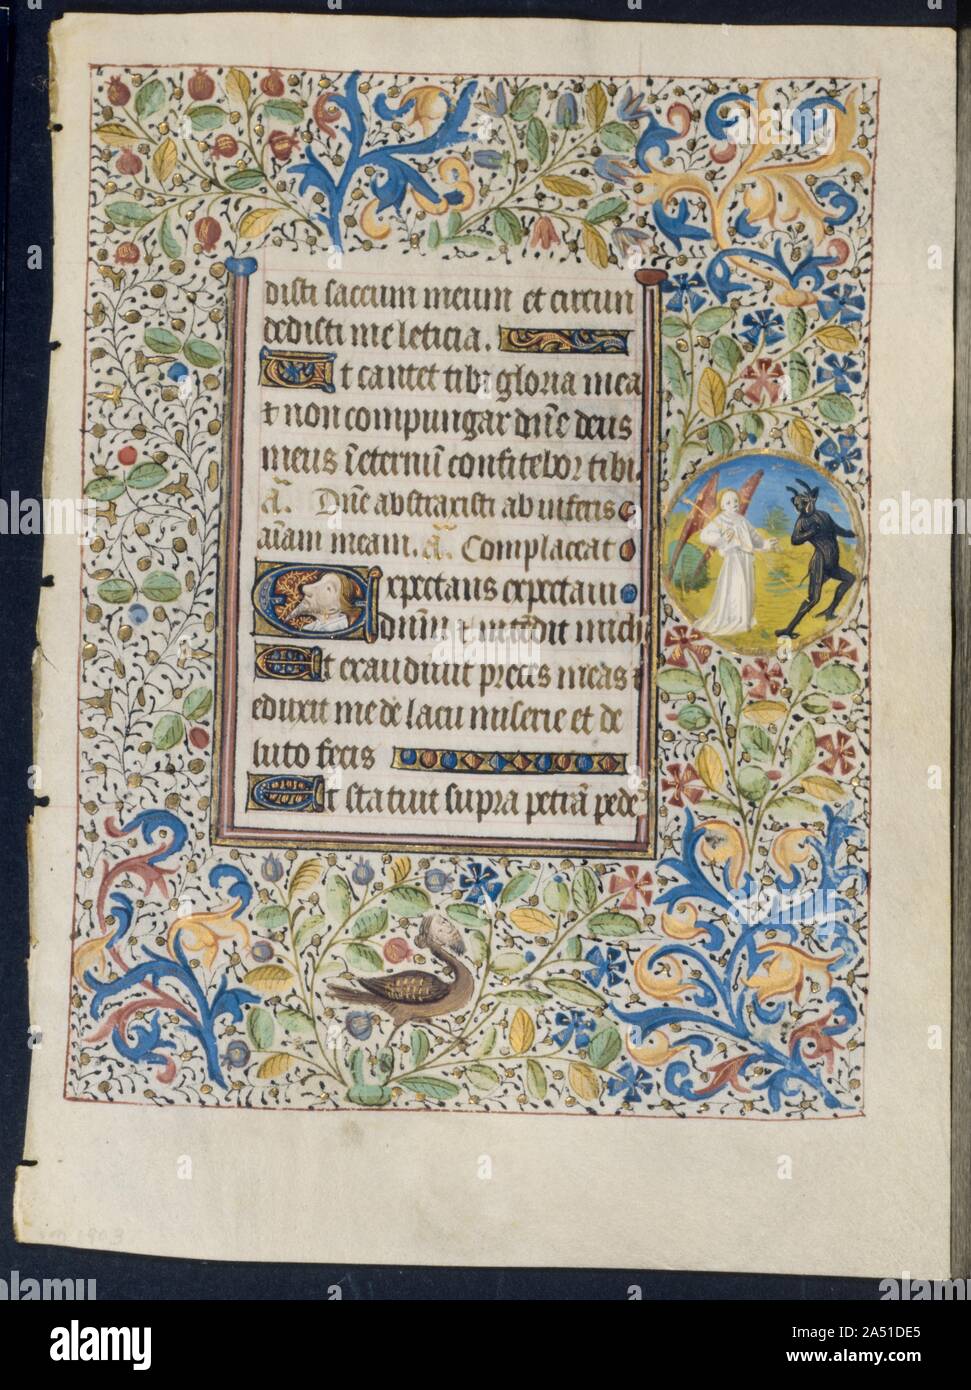 disti saccum meum et circun
dedisti me leticia.
Ut cantet tibi gloria mea
et non compungar dñe deus
meus ĩ eternũ confitebor tibi.
añ. Dñe abstraxisti ab inferis
aĩam meam. añ. Complaceat
Expectans expectaui
dñum et intendit michi
Et exaudiuit preces meas
eduxit me de lacu miserie et de
luto fecis
Et statuit supra petrã pede
alamy
Image ID: 2A51DE5
www.alamy.com